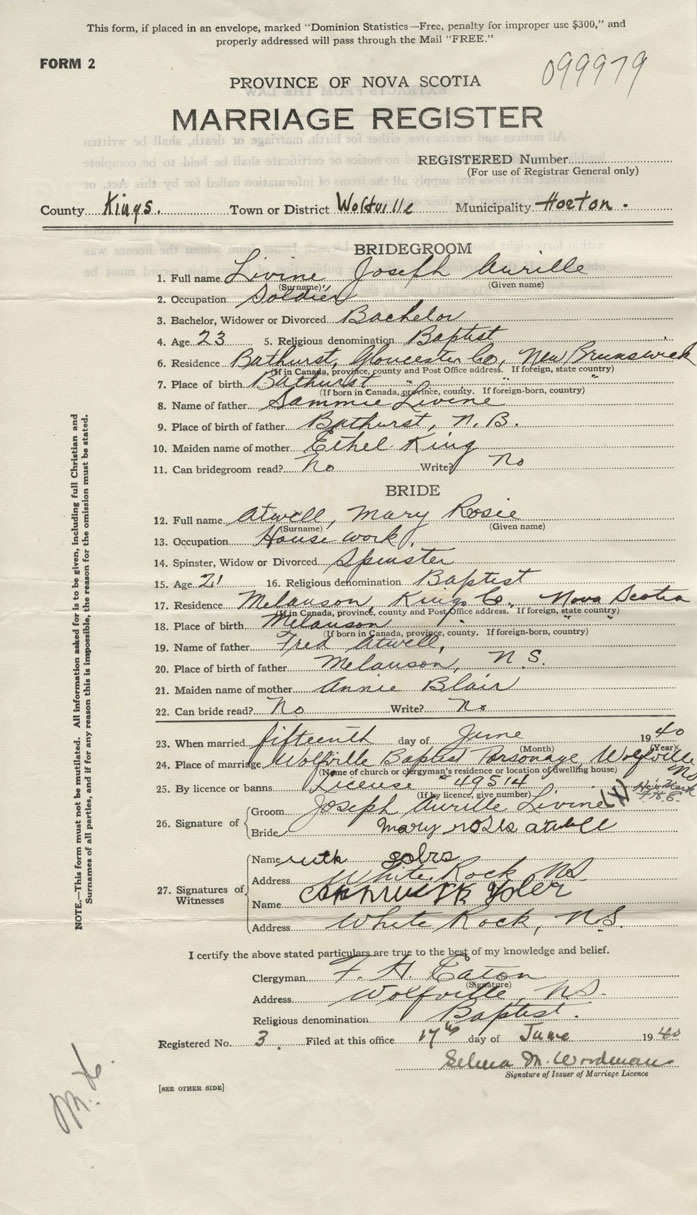 This form, if placed in an envelope, marked "Dominion Statistics—Free, penalty for improper use $300," and
properly addressed will pass through the Mail "FREE."
FORM 2
099979
PROVINCE OF NOVA SCOTIA
MARRIAGE REGISTER
REGISTERED Number
(For use of Registrar General only)
County Kings. Town or District Wolfville Municipality Horton.
BRIDEGROOM
1. Full name Livine Joseph Aurille
(Surname) (Given name)
2. Occupation Soldier
3. Bachelor, Widower or Divorced Bachelor
4. Age 23 5. Religious denomination Baptist
6. Residence Bathurst, Gloucester Co, New Brunswick
(If in Canada, province, county and Post Office address. If foreign, state country)
7. Place of birth Bathurst " " "
(If born in Canada, province, county. If foreign-born, country)
8. Name of father Sammie Livine
9. Place of birth of father Bathurst, N.B.
10. Maiden name of mother Ethel King
11. Can bridegroom read? no Write? no
BRIDE
12. Full name Atwell, Mary Rosie
(Surname) (Given name)
13. Occupation House work
14. Spinster, Widow or Divorced Spinster
15. Age 21 16. Religious denomination Baptist
17. Residence Melanson, Kings Co. Nova Scotia
(If in Canada, province, county and Post Office address. If foreign, state country)
18. Place of birth Melanson " " "
(If born in Canada, province, county. If foreign-born, country)
19. Name of father Fred Atwell,
20. Place of birth of father Melanson, N.S.
21. Maiden name of mother Annie Blair
22. Can bride read? No Write? No
23. When married fifteenth day of June 1940
(Month) (Year)
24. Place of marriage Wolfville Baptist Parsonage, Wolfville NS
(Name of church or clergyman's residence or location of dwelling house)
25. By licence or banns License #49514
(If by licence, give number)
26. Signature of
Groom Joseph Aurille Livine (X) His Mark
Bride mary roses atwell
27. Signatures of Witnesses
Name ruth
Address White Rock NS
Name
Address White Rock, N.S.
I certify the above stated particulars are true to the best of my knowledge and belief.
Clergyman F. H. Eaton
(Signature)
Address Wolfville, NS.
Religious denomination Baptist.
Registered No. 3. Filed at this office 17th day of June 1940
Selena M. Woodman
Signature of Issuer of Marriage Licence
[SEE OTHER SIDE]
NOTE.—This form must not be mutilated. All information asked for is to be given, including full Christian and
Surnames of all parties, and if for any reason this is impossible, the reason for the omission must be stated.